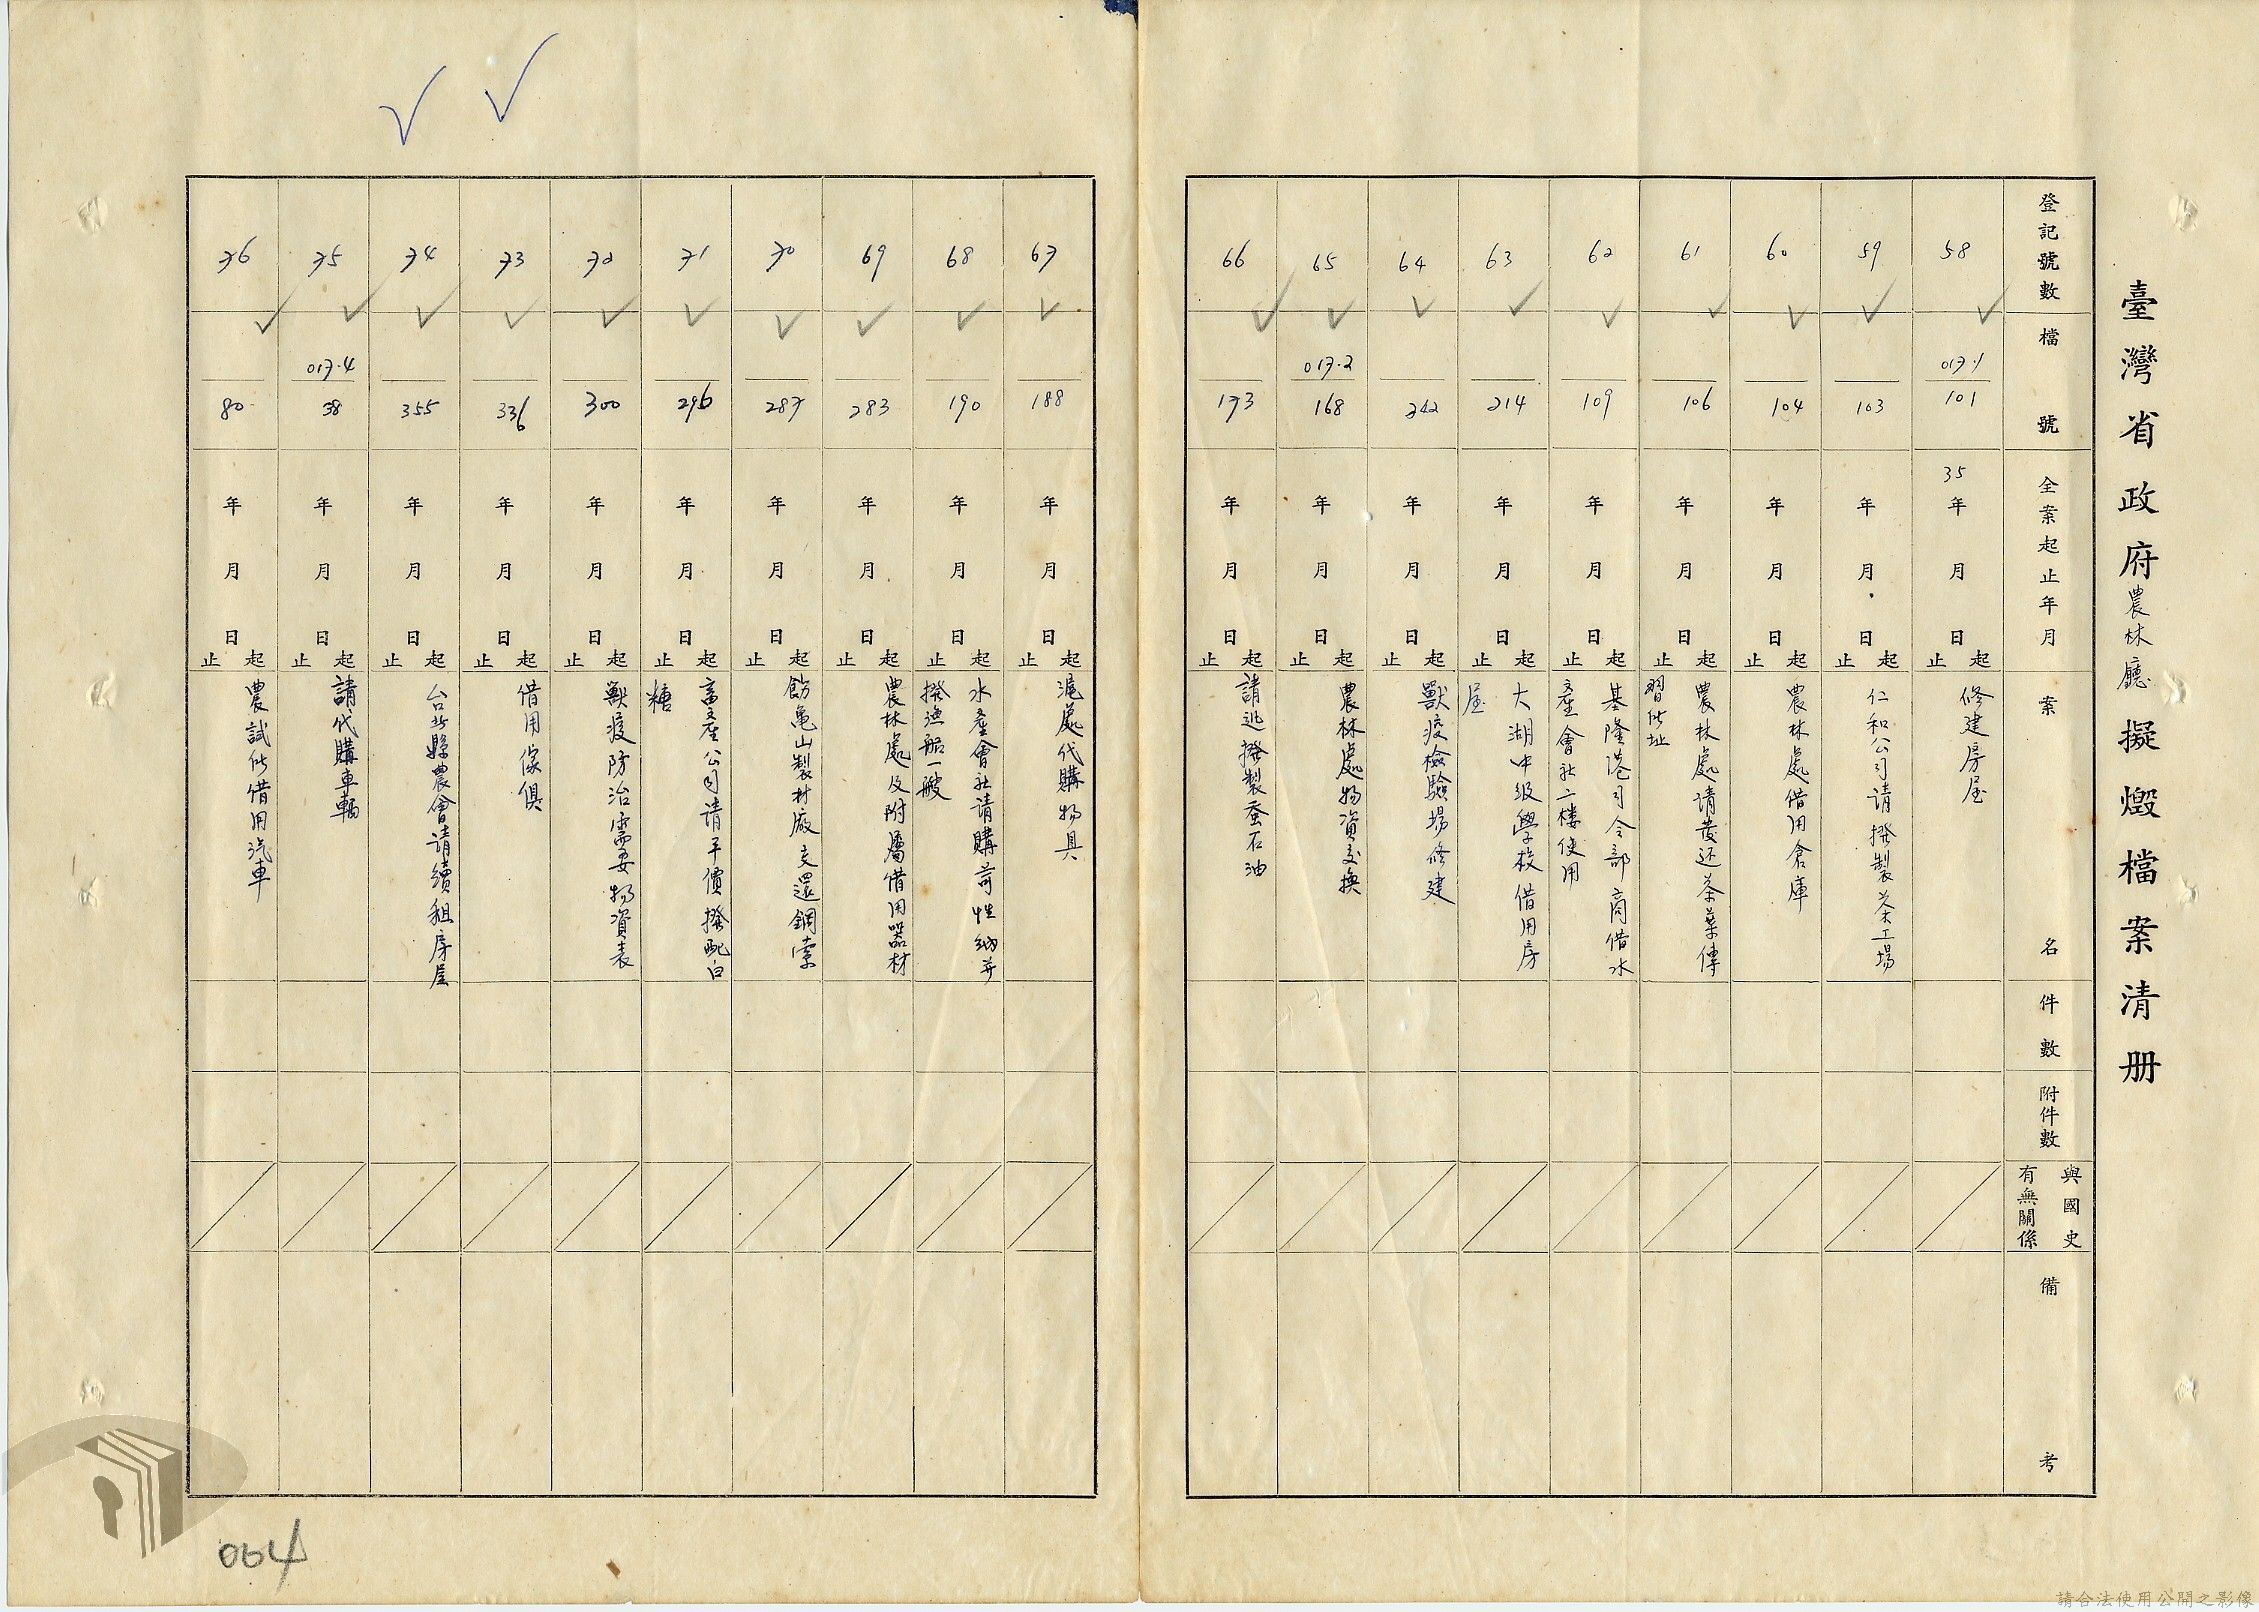 臺灣省政府農林廳擬燬檔案清册
登記號數
檔號
全案起止年月
案名
件數
附件數
與國史有無關係
備考
58
017.1
101
35年月日起止
修建房屋
59
103
年月日起止
仁和公司請撥製茶工場
60
104
年月日起止
農林處借用倉庫
61
106
年月日起止
農林處請發还茶葉傳
習所址
62
109
年月日起止
基隆港司令部商借水
產會社二樓使用
63
214
年月日起止
大湖中級學校借用房
屋
64
242
年月日起止
獸疫檢驗場修建
65
017.2
168
年月日起止
農林處物資交換
66
173
年月日起止
請 撥製蚕石油
67
188
年月日起止
滬處代購物具
68
190
年月日起止
水產會社請購苛性納并
撥漁船一艘
69
283
年月日起止
農林處及附屬借用器材
70
287
年月日起止
飭龜山製材廠交還鋼索
71
296
年月日起止
畜產公司請平價撥配白
糖
72
300
年月日起止
獸疫防治需要物資表
73
336
年月日起止
借用傢俱
74
355
年月日起止
台北縣農會請續租房屋
75
017.4
38
年月日起止
請代購車輛
76
80
年月日起止
農試所借用汽車
004
請合法使用公開之影像